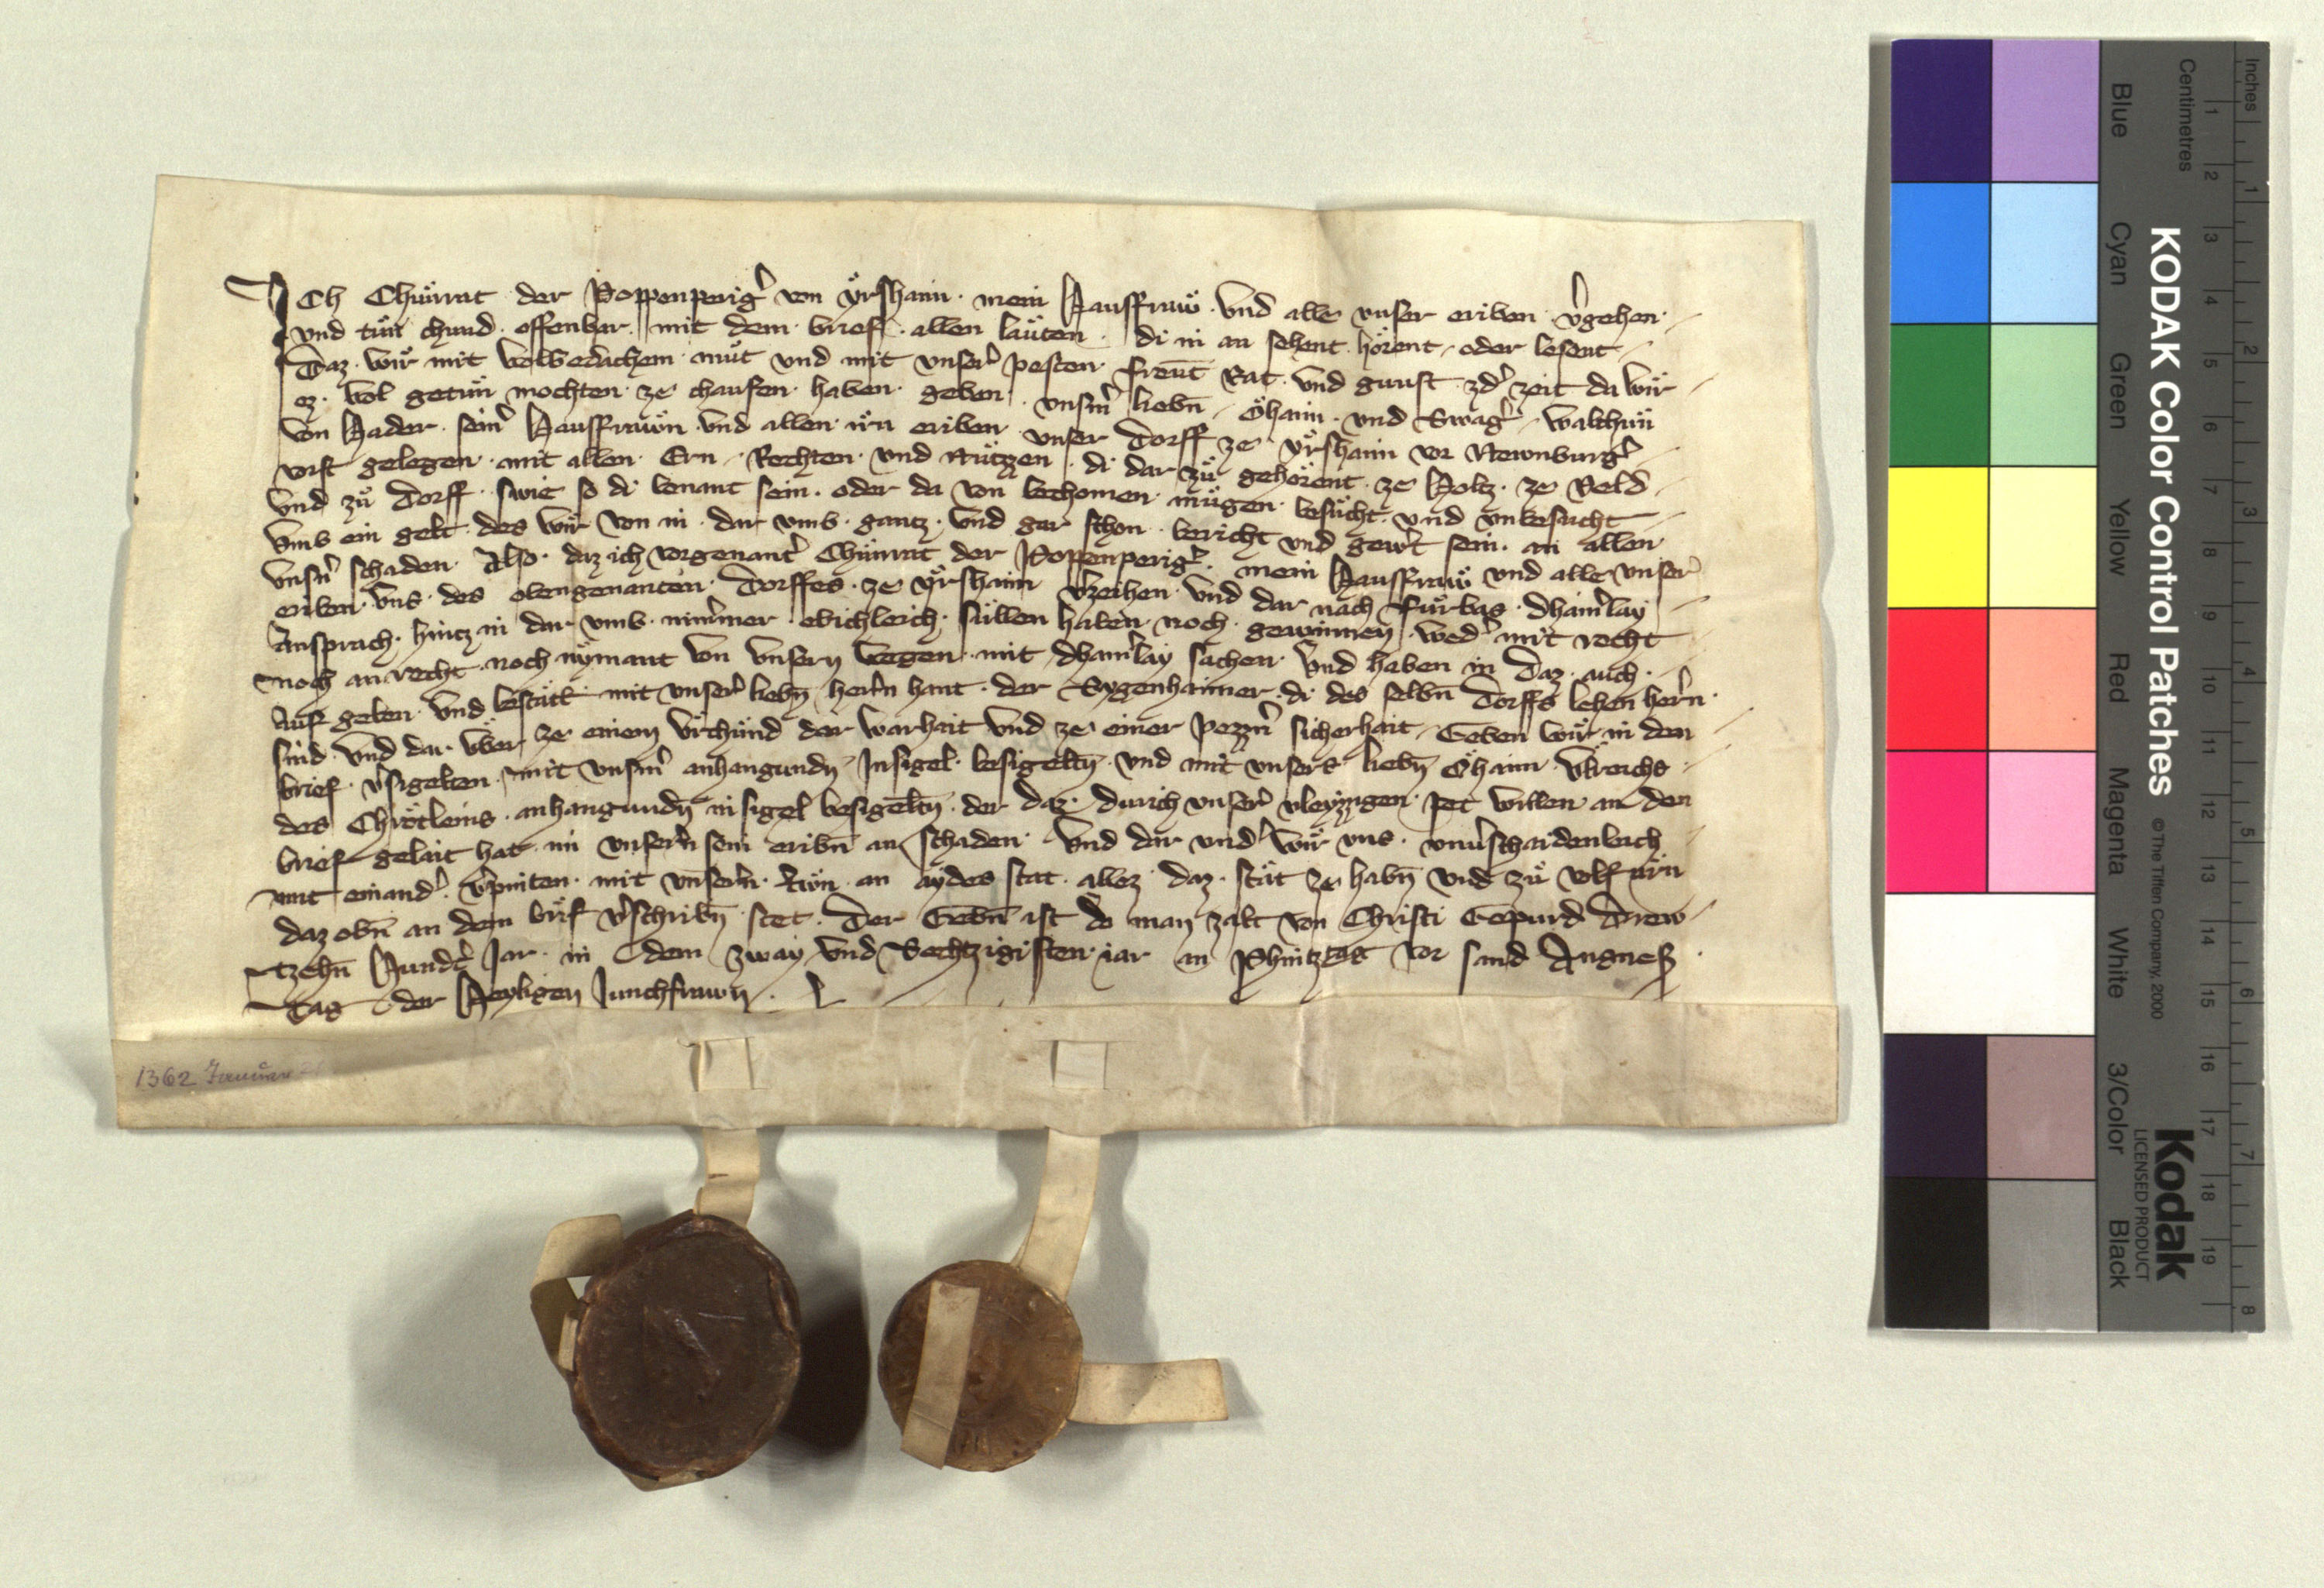 Ich Chunrat der Poppenperig̕ von yrshaim · mein Hausfraw · Und alle vnser eriben v̕gehen ·
vnd tun chund · offenbar · mit dem · brief · allen lauten · di in an sehent · hörent · oder lesent
Daz · wir mit wolbedachem · mut und mit vnser̕ pesten freunt Rat · und gunst · zd̕ zeit da wir
ez · wol getun mochten · ze chaufen · haben · geben · vnsm̕ liebn̄ Öhaim · und Swag̕
von Hader · sein̕ Hausfrawn · und allen irn eriben · unser Dorff ze yrshaim vor Newnburg̕
vorst gelegen · mit allen · Ern · Rechten · und nützzen · di dar zu gehörent · ze Holtz · ze Veld
und zu Dorff · swie so di benant sein · oder da von bechomen · mügen · besucht · und vnbesucht
vmb ein gelt · des wir von in · dar vmb · gantz · und gar schon · bericht und gew̕t sein · an allen
vnsn̕ schaden · Also · daz ich vorgenant̕ Chunrat der Poppenperig̕ · mein Hausfraw und alle vnser̕
eriben · vns · des obengenanten · Dorffes · ze yrshaim v̕zeihen · und dar nach fürbas · dhain̕lay
Ansprach · hintz in dar vmb · nim̕mer · ebichleich · süllen haben noch · gewinnen · wed̕ mit recht
noch an recht · noch nymant von vnsern wegen · mit dhain̕lay sachen · Und haben in Daz · auch ·
auf geben · und bestätt · mit vnser̕ liebn̄ her̕n hant · der Sygenhaimer · di des selbn̄ Dorffs lehen her̕n ·
sind · und dar über ze einem vrchünd der warhait und ze einer pezzn̕ sicherhait · Geben wir in den
brief · v̕sigelten · mit vnsm̕ anhangundn̄ Insigel · besigeltn̄ · und mit vnsers liebn̄ Öhaim · Ulreichs
des Chrötleins · anhangundn̄ insigel besigeltn̄ · der daz · durich vnser̕ vleyzzigen · pet willen an den
brief gelait hat · im vnser̕n sein eribn̄ an schaden · Und dar und̕ wir vns · vnu̕schaidenleich
mit einand̕ · v̕pinten · mit vnser̕n · triwn · an aydes stat · allez · daz · stät ze habn̄ und zu volfürn
daz obn̄ an dem brif v̕schribn̄ stet · Der Gebn̄ ist do man zalt von Christi Gepurd Drew
tzehn̄ Hund̕t Jar · in dem zway und Sechtzigisten · iar an Phintztag vor sand Angnes ·
Tag · der Heyligen Junchfrawn ·
1362 Januar
KODAK Color Control Patches © The Tiffen Company, 2000
Kodak
LICENSED PRODUCT
Blue Cyan Green Yellow Red Magenta White 3/Color Black
Centimetres 1 2 3 4 5 6 7 8 9 10 11 12 13 14 15 16 17 18 19
Inches 1 2 3 4 5 6 7 8